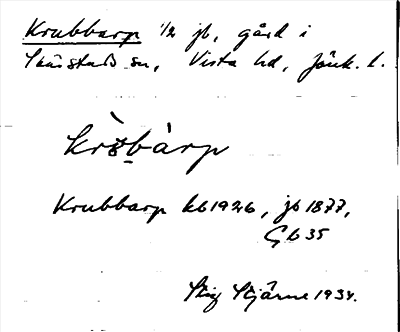 Krubbarp 1/2 jb, gård i
Skärstads sn, Vista hd, Jönk. l.
krɞ̀bàrp
Krubbarp kb1926, jb 1877,
Gb35
Stig Stjärne 1934.